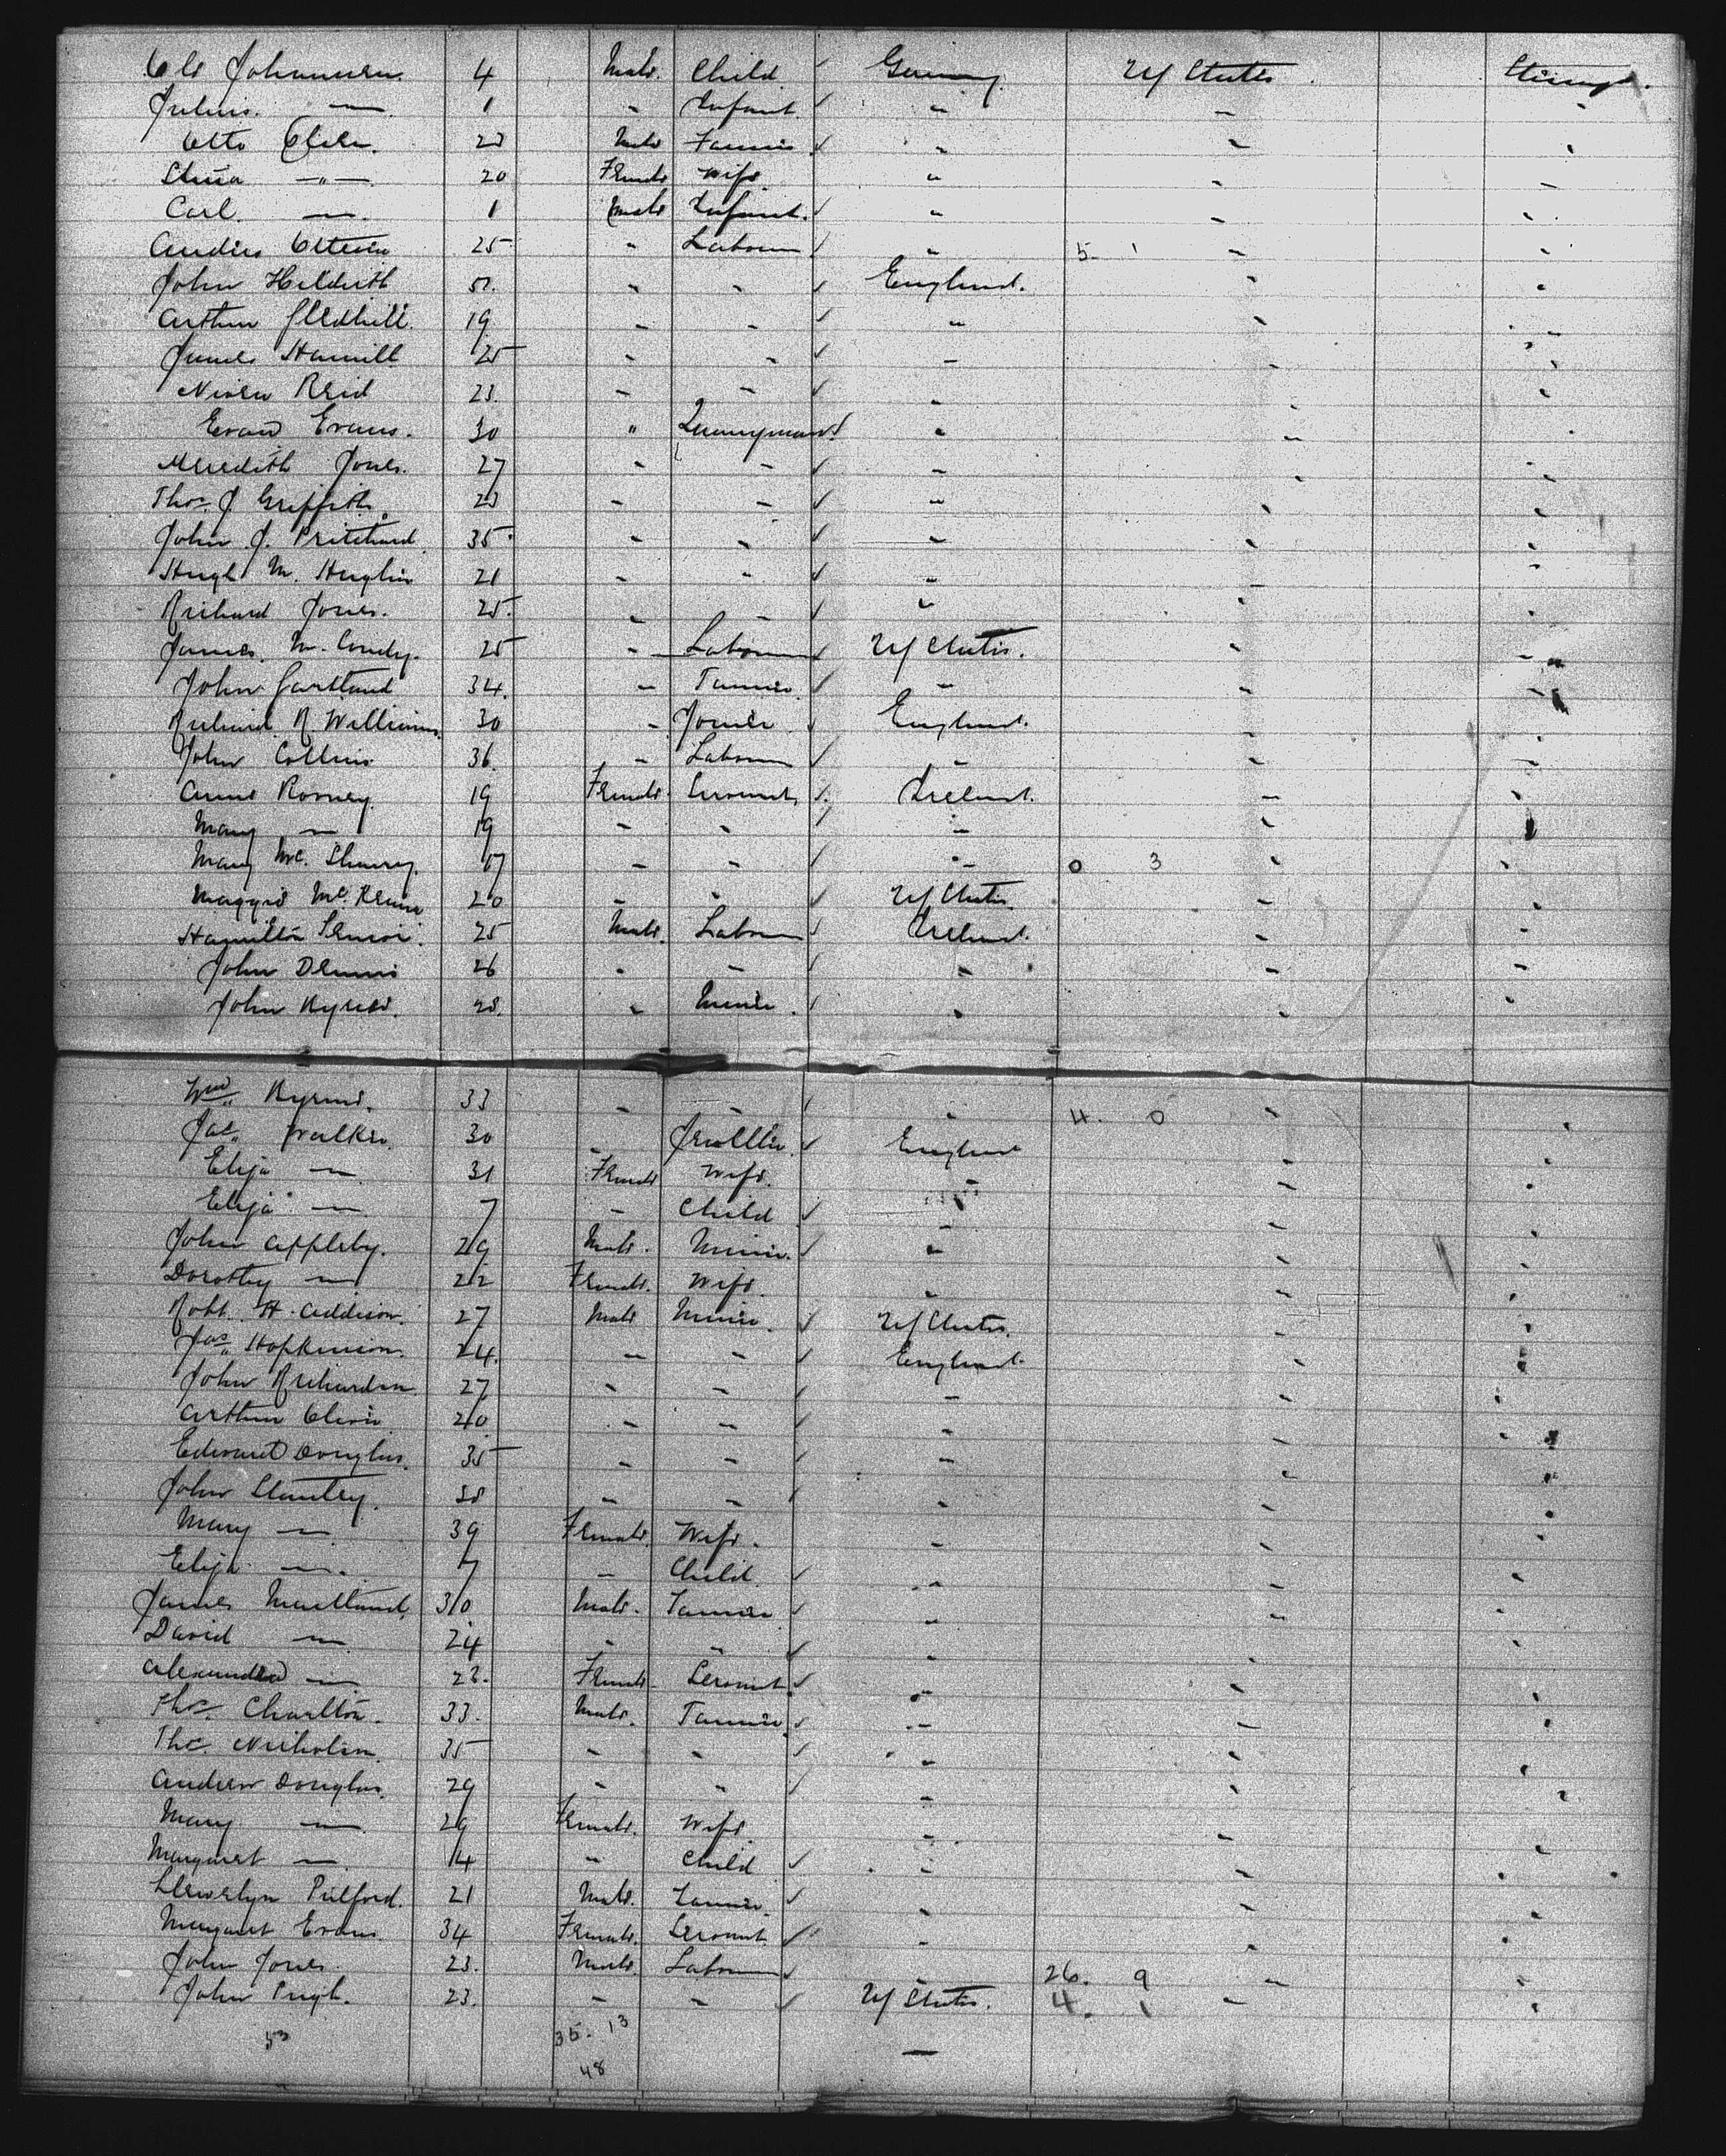 Ole Johannsen 4 Male Child Germany U/States Steerage
Julius — 1 " Infant " " "
Otto 23 Male Farmer " " "
— 20 Female Wife " " "
Carl — 1 Male Infant " " "
25 " Labourer " 5 1 " "
John " " England. " "
Arthur Gledhill 19 " " " " "
James Hamill 25 " " " " "
Niven Reid 23 " " " " "
Evan Evans. 30 " Quarryman " " "
Meredith Jones. 27 " " " " "
Thos. J Griffith 23 " " " " "
John J. Pritchard 35 " " " " "
Hugh M. Hughes 21 " " " " "
Richard Jones. 25 " " " " "
James 25 " Labourer U/States. " "
John Gartland 34 " Farmer " " "
Richard R Williams 30 " Joiner England. " "
John Collins 36 " Labourer " " "
Anne Rooney 19 Female Servant Ireland. " "
Mary — 19 " " " " "
Mary Mc. 17 " " " 0 3 " "
Maggie McKenna 20 " " U/States " "
Hamilton 25 Male. Labourer Ireland. " "
John Dennis 26 " " " " "
John 28. " Miner. " " "
Wm. 33 " " " 4. 0 " "
Jas. Walker 30 " Jeweller England " "
Eliza — 31 Female Wife. " " "
Eliza — 7 " Child " " "
John Appleby. 29 Male. Miner. " " "
Dorothy — 22 Female. Wife. " " "
Robt. H. Addison. 27 Male Miner. U/States. " "
Jas. Hopkinson. 24. " " England. " "
John Richardson 27 " " " " "
Arthur 20 " " " " "
Edward Douglas. 35 " " " " "
John Stanley. 38 " " " " "
Mary — 39 Female. Wife. " " "
Eliza — 7 " Child. " " "
James Maitland, 30 Male. Farmer " " "
David — 24 " " " " "
— 23. Female Servant. " " "
Thos. Charlton. 33. Male. Farmer. " " "
Thos. Nicholson. 35 " " " " "
Andrew Douglas. 29 " " " " "
Mary — 29 Female. Wife. " " "
Margaret — 14 " Child " " "
Llewelyn Pulford. 21 Male. Farmer. " " "
Margaret Evans. 34 Female. Servant. " " "
John Jones. 23. Male. Labourer " 26. 9 " "
John Pugh. 23. " " U/States. 4. 1 " "
53 35. 13
48